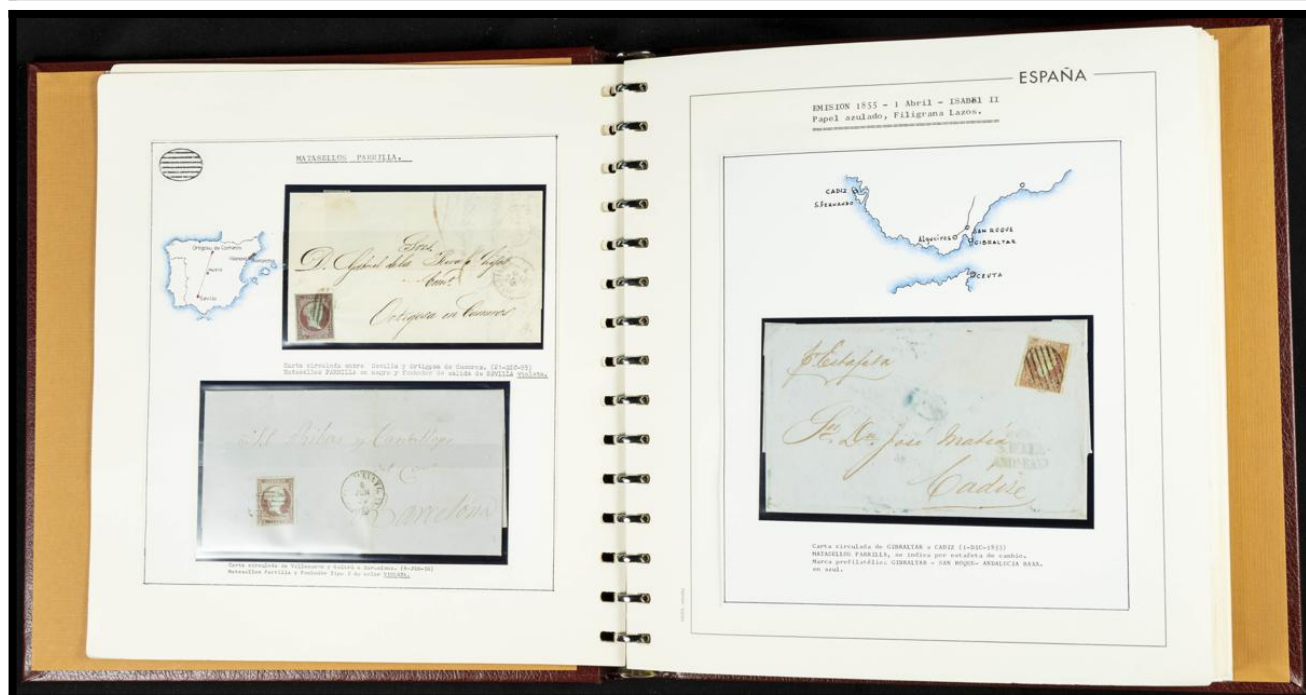 MATASELLOS PARRILLA.
Ortigosa de Cameros
Madrid
Sevilla
Sres.
D. Gabriel de la Riva e hijos
Ortigosa en Cameros
Carta circulada sobre Sevilla y Ortigosa de Cameros. (21-DIC-55)
Matasellos PARRILLA en negro y Fechador de salida de SEVILLA violeta.
6
JUN
Barcelona
Carta circulada de Villanueva y Geltrú a Barcelona. (6-JUN-56)
Matasellos Parrilla y Fechador Tipo I de color VIOLETA.
ESPAÑA
EMISION 1855 - 1 Abril - ISABEL II
Papel azulado, Filigrana Lazos.
CADIZ
S. FERNANDO
SAN ROQUE
Algeciras
GIBRALTAR
CEUTA
pr Estafeta
Sr. Dn. José Matia
Cadiz
Carta circulada de GIBRALTAR a CADIZ (1-DIC-1855)
MATASELLOS PARRILLA, se indica por estafeta de cambio.
Marca prefilatélic: GIBRALTAR - SAN ROQUE- ANDALUCIA BAXA.
en azul.